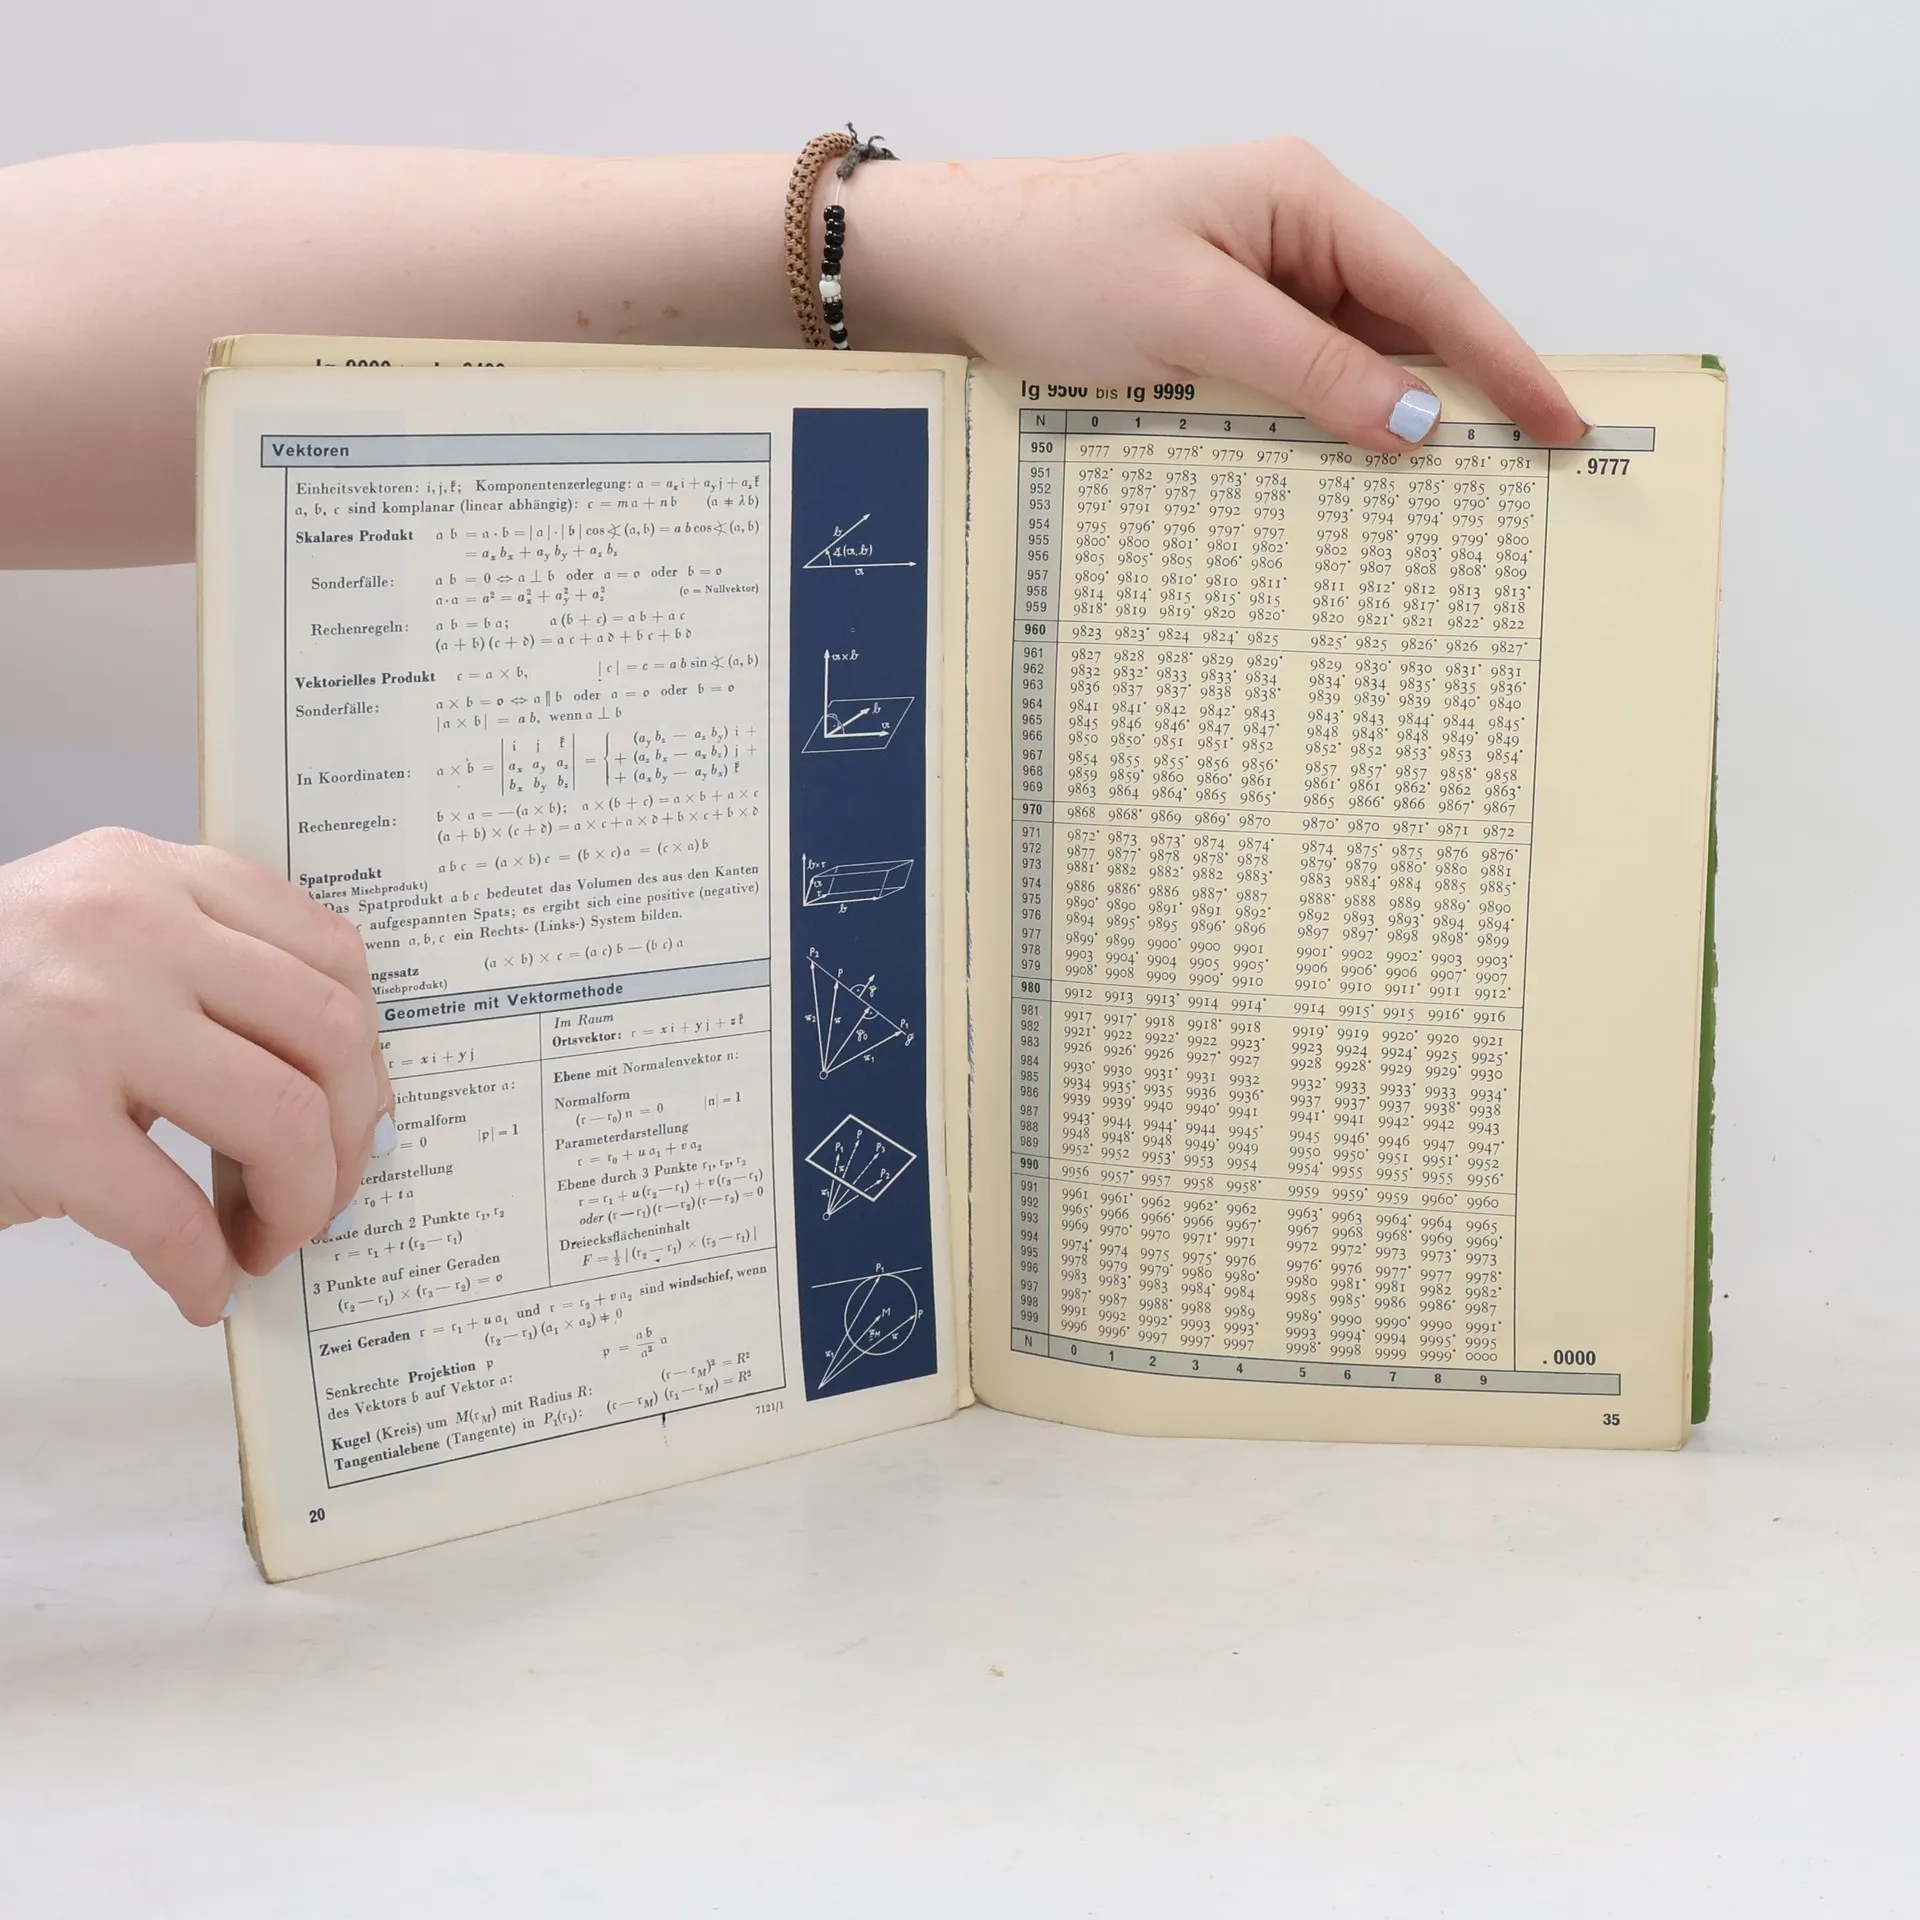 Vektoren
Einheitsvektoren: i, j, k; Komponentenzerlegung: a = aₓ i + a_y j + a_z k
a, b, c sind komplanar (linear abhängig): c = m a + n b (a ≠ λ b)
Skalares Produkt a b = a · b = |a| · |b| cos ∢ (a, b) = a b cos ∢ (a, b)
= aₓ bₓ + a_y b_y + a_z b_z
Sonderfälle: a b = 0 ⇔ a ⊥ b oder a = o oder b = o
a · a = a² = aₓ² + a_y² + a_z² (o = Nullvektor)
Rechenregeln: a b = b a; a (b + c) = a b + a c
(a + b) (c + d) = a c + a d + b c + b d
Vektorielles Produkt c = a × b, |c| = c = a b sin ∢ (a, b)
Sonderfälle: a × b = o ⇔ a ∥ b oder a = o oder b = o
|a × b| = a b, wenn a ⊥ b
i j k (a_y b_z − a_z b_y) i +
In Koordinaten: a × b = aₓ a_y a_z = + (a_z bₓ − aₓ b_z) j +
bₓ b_y b_z + (aₓ b_y − a_y bₓ) k
Rechenregeln: b × a = −(a × b); a × (b + c) = a × b + a × c
(a + b) × (c + d) = a × c + a × d + b × c + b × d
Spatprodukt a b c = (a × b) c = (b × c) a = (c × a) b
Mischprodukt)
Das Spatprodukt a b c bedeutet das Volumen des aus den Kanten
aufgespannten Spats; es ergibt sich eine positive (negative)
wenn a, b, c ein Rechts- (Links-) System bilden.
(a × b) × c = (a c) b − (b c) a
Mischprodukt)
Geometrie mit Vektormethode
Im Raum
r = x i + y j Ortsvektor: r = x i + y j + z k
Ebene mit Normalenvektor n:
a:
Normalform
(r − r₀) n = 0 |n| = 1
= 0 |p| = 1
Parameterdarstellung
r = r₀ + u a₁ + v a₂
r₀ + t a
Ebene durch 3 Punkte r₁, r₂, r₃
durch 2 Punkte r₁, r₂
r = r₁ + u (r₂ − r₁) + v (r₃ − r₁)
r = r₁ + t (r₂ − r₁)
oder (r − r₁) (r − r₂) (r − r₃) = 0
3 Punkte auf einer Geraden
Dreiecksflächeninhalt
(r₂ − r₁) × (r₃ − r₂) = o
F = ½ | (r₂ − r₁) × (r₃ − r₁) |
Zwei Geraden r = r₁ + u a₁ und r = r₂ + v a₂ sind windschief, wenn
(r₂ − r₁) (a₁ × a₂) ≠ 0
Senkrechte Projektion p
des Vektors b auf Vektor a: p = a b / a² a
Kugel (Kreis) um M(r_M) mit Radius R: (r − r_M)² = R²
Tangentialebene (Tangente) in P₁(r₁): (r − r_M) (r₁ − r_M) = R²
7121/1
20
lg 9500 bis lg 9999
N 0 1 2 3 4 8 9
950 9777 9778 9778• 9779 9779• 9780 9780• 9780 9781• 9781
.9777
951 9782• 9782 9783 9783• 9784 9784• 9785 9785• 9785 9786•
952 9786 9787• 9787 9788 9788• 9789 9789• 9790 9790• 9790
953 9791• 9791 9792• 9792 9793 9793• 9794 9794• 9795 9795•
954 9795 9796• 9796 9797• 9797 9798 9798• 9799 9799• 9800
955 9800• 9800 9801• 9801 9802• 9802 9803 9803• 9804 9804•
956 9805 9805• 9805 9806• 9806 9807• 9807 9808 9808• 9809
957 9809• 9810 9810• 9810 9811• 9811 9812• 9812 9813 9813•
958 9814 9814• 9815 9815• 9815 9816• 9816 9817• 9817 9818
959 9818• 9819 9819• 9820 9820• 9820 9821• 9821 9822• 9822
960 9823 9823• 9824 9824• 9825 9825• 9825 9826• 9826 9827•
961 9827 9828 9828• 9829 9829• 9829 9830• 9830 9831• 9831
962 9832 9832• 9833 9833• 9834 9834• 9834 9835• 9835 9836•
963 9836 9837 9837• 9838 9838• 9839 9839• 9839 9840• 9840
964 9841 9841• 9842 9842• 9843 9843• 9843 9844• 9844 9845•
965 9845 9846 9846• 9847 9847• 9848 9848• 9848 9849• 9849
966 9850 9850• 9851 9851• 9852 9852• 9852 9853• 9853 9854•
967 9854 9855 9855• 9856 9856• 9857 9857• 9857 9858• 9858
968 9859 9859• 9860 9860• 9861 9861• 9861 9862• 9862 9863•
969 9863 9864 9864• 9865 9865• 9865 9866• 9866 9867• 9867
970 9868 9868• 9869 9869• 9870 9870• 9870 9871• 9871 9872
971 9872• 9873 9873• 9874 9874• 9874 9875• 9875 9876 9876•
972 9877 9877• 9878 9878• 9878 9879• 9879 9880• 9880 9881
973 9881• 9882 9882• 9882 9883• 9883 9884• 9884 9885 9885•
974 9886 9886• 9886 9887• 9887 9888• 9888 9889 9889• 9890
975 9890• 9890 9891• 9891 9892• 9892 9893 9893• 9894 9894•
976 9894 9895• 9895 9896• 9896 9897 9897• 9898 9898• 9899
977 9899• 9899 9900• 9900 9901 9901• 9902 9902• 9903 9903•
978 9903 9904• 9904 9905 9905• 9906 9906• 9906 9907• 9907
979 9908• 9908 9909 9909• 9910 9910• 9910 9911• 9911 9912•
980 9912 9913 9913• 9914 9914• 9914 9915• 9915 9916• 9916
981 9917 9917• 9918 9918• 9918 9919• 9919 9920• 9920 9921
982 9921• 9922 9922• 9922 9923• 9923 9924 9924• 9925 9925•
983 9926 9926• 9926 9927• 9927 9928 9928• 9929 9929• 9930
984 9930• 9930 9931• 9931 9932 9932• 9933 9933• 9933 9934•
985 9934 9935• 9935 9936 9936• 9937 9937• 9937 9938• 9938
986 9939 9939• 9940 9940• 9941 9941• 9941 9942• 9942 9943
987 9943• 9944 9944• 9944 9945• 9945 9946• 9946 9947 9947•
988 9948 9948• 9948 9949• 9949 9950 9950• 9951 9951• 9952
989 9952• 9952 9953• 9953 9954 9954• 9955 9955• 9955 9956•
990 9956 9957• 9957 9958 9958• 9959 9959• 9959 9960• 9960
991 9961 9961• 9962 9962• 9962 9963• 9963 9964• 9964 9965
992 9965• 9966 9966• 9966 9967• 9967 9968 9968• 9969 9969•
993 9969 9970• 9970 9971• 9971 9972 9972• 9973 9973• 9973
994 9974• 9974 9975 9975• 9976 9976• 9976 9977• 9977 9978•
995 9978 9979 9979• 9980 9980• 9980 9981• 9981 9982 9982•
996 9983 9983• 9983 9984• 9984 9985 9985• 9986 9986• 9987
997 9987• 9987 9988• 9988 9989 9989• 9990 9990• 9990 9991•
998 9991 9992 9992• 9993 9993• 9993 9994• 9994 9995• 9995
999 9996 9996• 9997 9997• 9997 9998• 9998 9999 9999• 0000
N 0 1 2 3 4 5 6 7 8 9
.0000
35